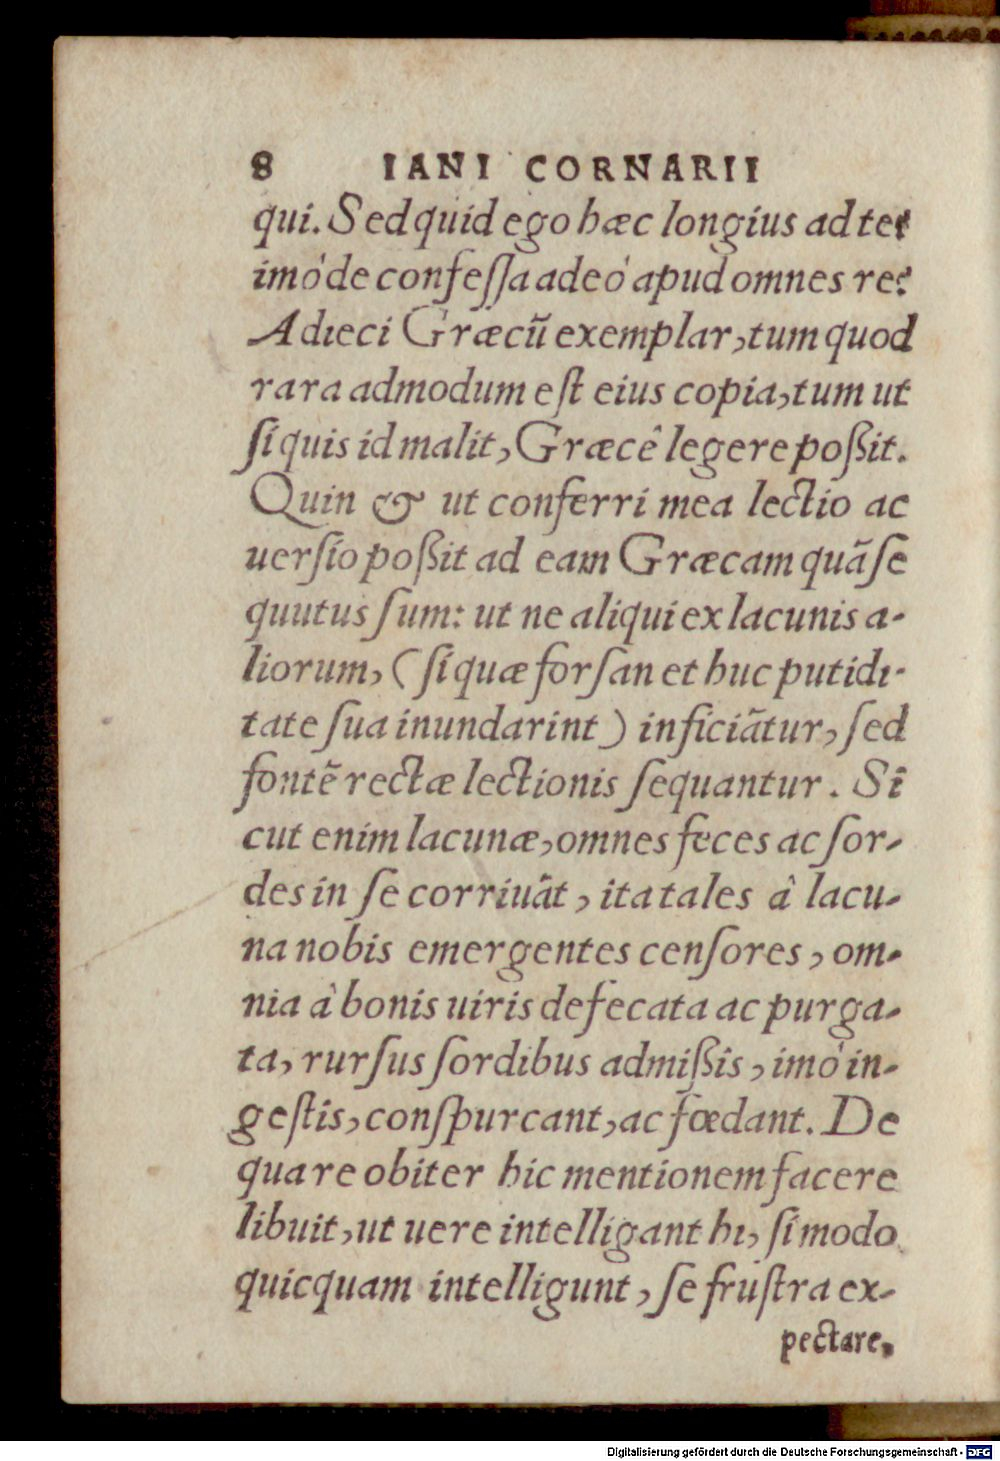 8 IANI CORNARII
qui. Sed quid ego hæc longius ad te?
imò de confeſſa adeò apud omnes re?
Adieci Græcũ exemplar, tum quod
rara admodum eſt eius copia, tum ut
ſi quis id malit, Græcê legere poßit.
Quin & ut conferri mea lectio ac
uerſio poßit ad eam Græcam quã ſe
quutus ſum: ut ne aliqui ex lacunis a-
liorum, (ſi quæ forſan et huc putidi-
tate ſua inundarint) inficiãtur, ſed
fontẽ rectæ lectionis ſequantur. Si
cut enim lacunæ, omnes feces ac ſor-
des in ſe corriuãt, ita tales à lacu-
na nobis emergentes cenſores, om-
nia à bonis uiris defecata ac purga-
ta, rurſus ſordibus admißis, imò in-
geſtis, conſpurcant, ac fœdant. De
qua re obiter hic mentionem facere
libuit, ut uere intelligant hi, ſi modo
quicquam intelligunt, ſe fruſtra ex-
pectare,
Digitalisierung gefördert durch die Deutsche Forschungsgemeinschaft - DFG